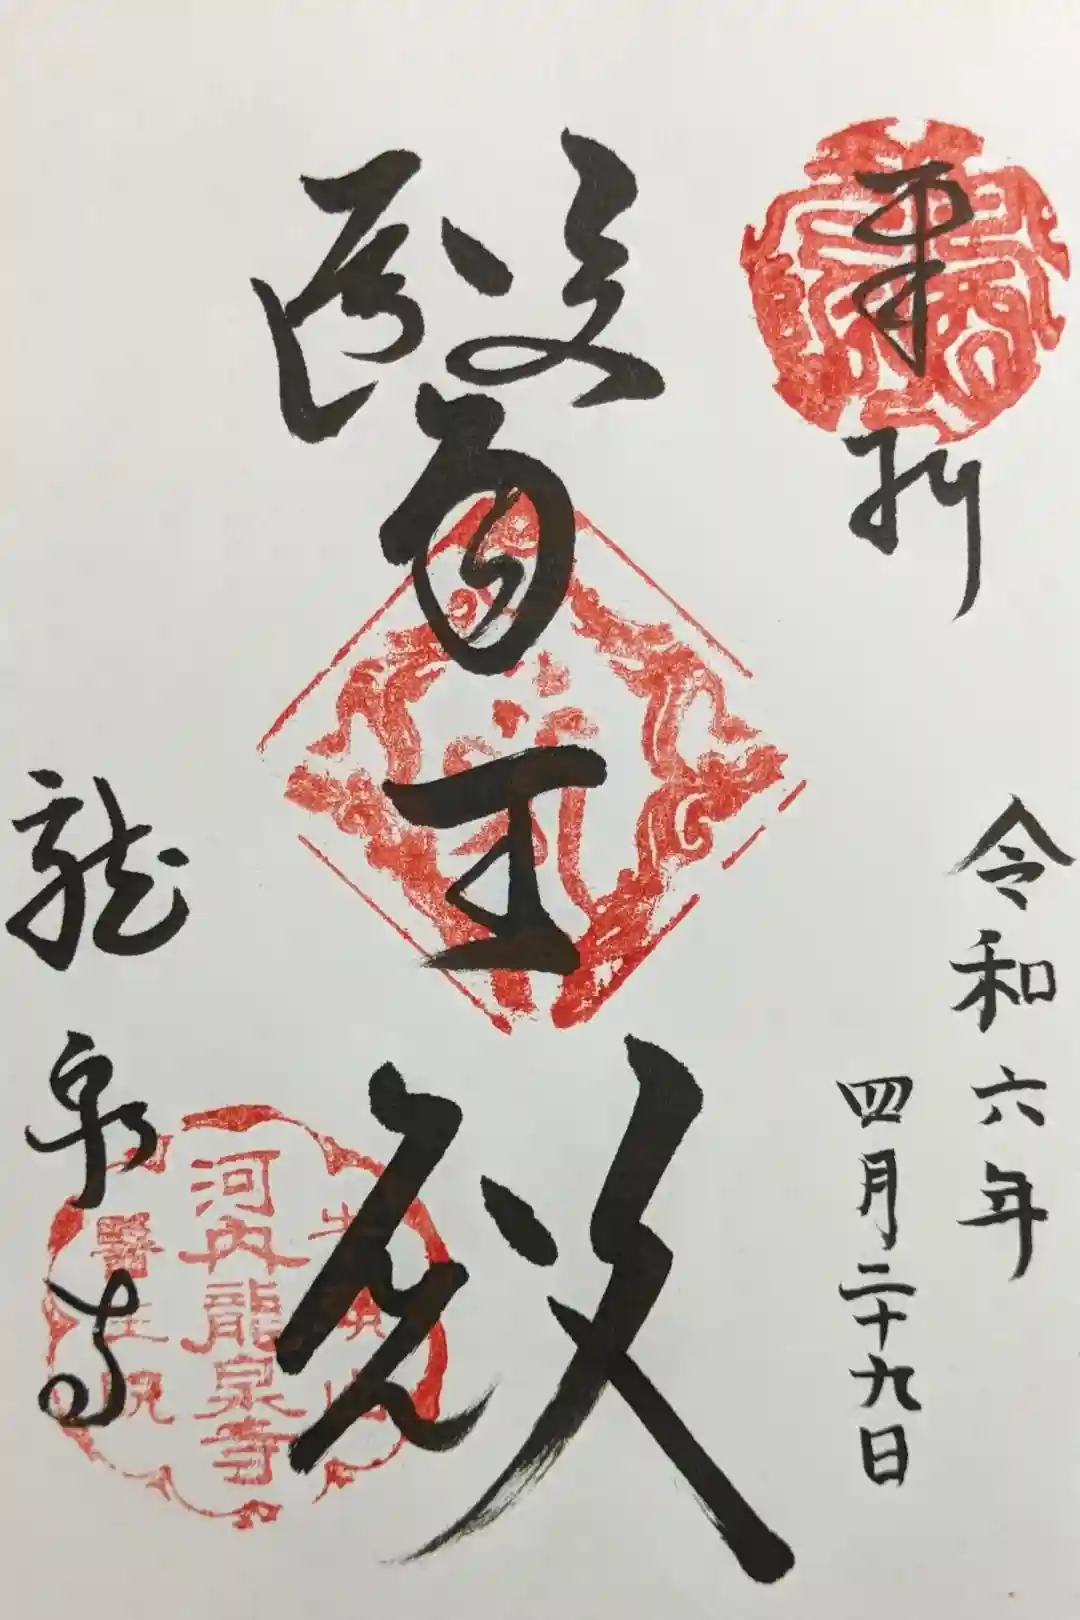 奉拝
令和六年
四月二十九日
醫王殿
龍泉寺
河内龍泉寺
醫王院